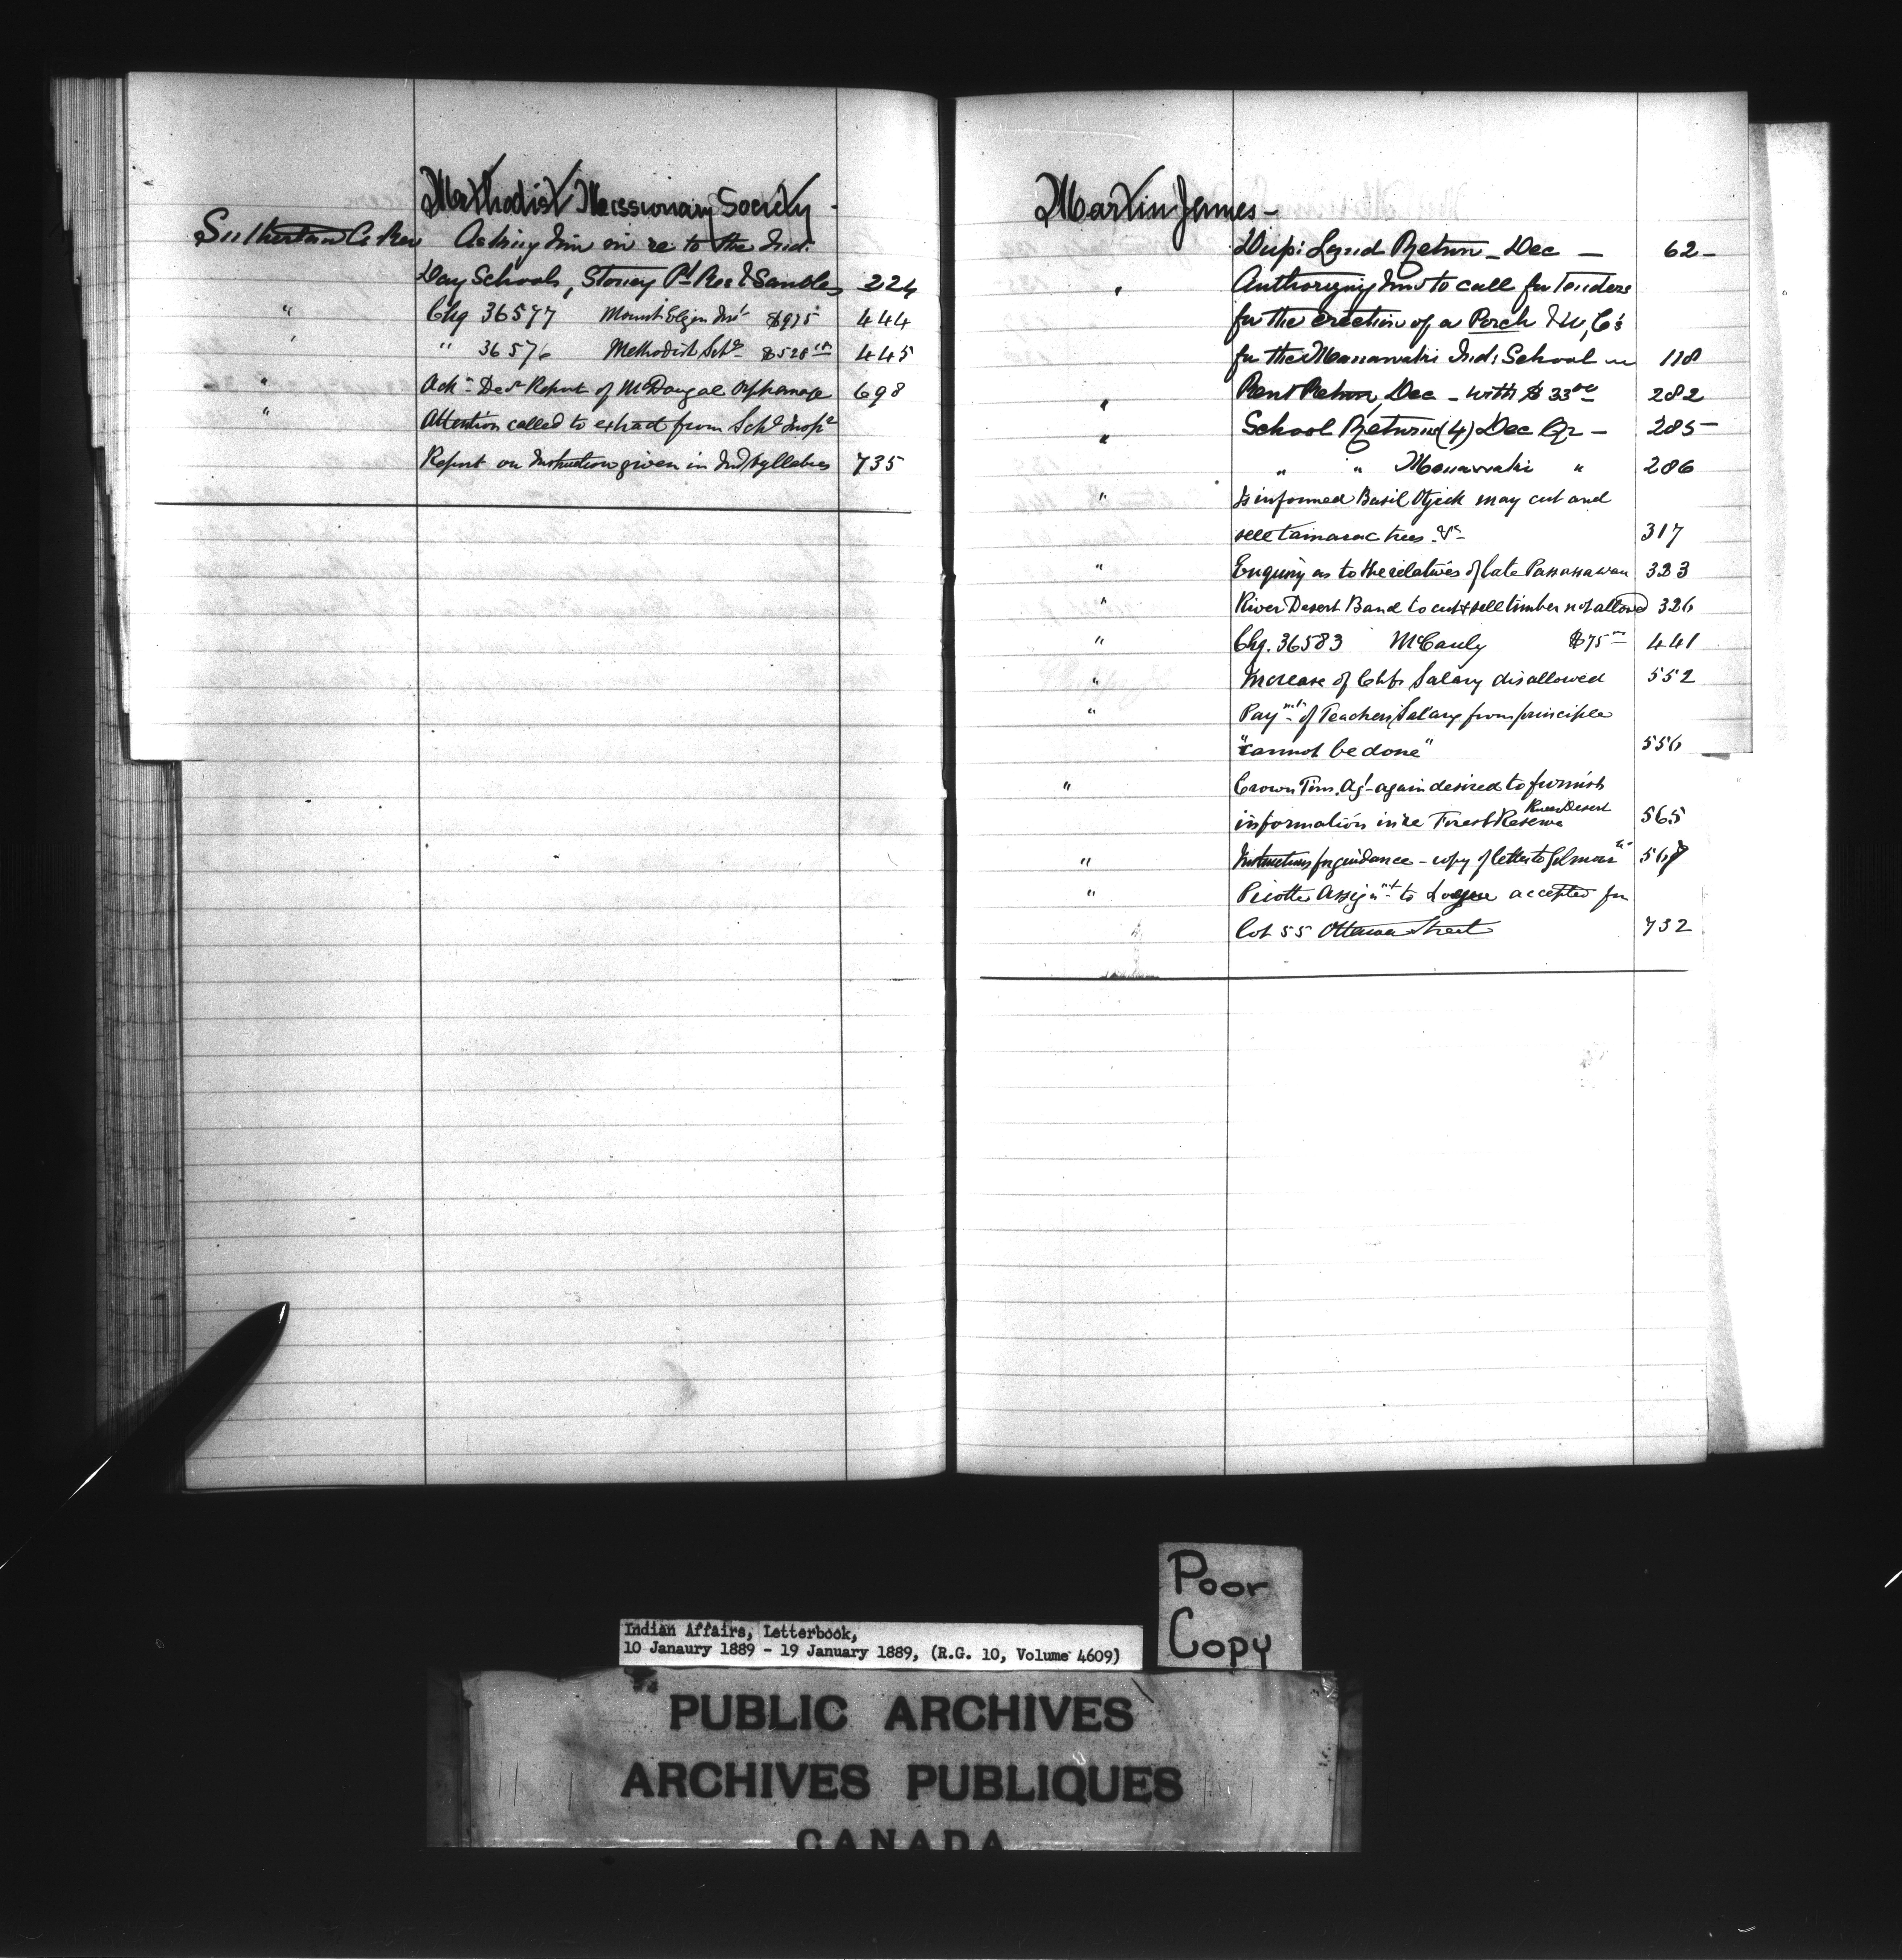 Methodist Missionary Society
Sutherland A. Rev Asking him in re to the Ind.
Day Schools, Stoney Pt Res & Saubles 224
" Chq 36577 Mount Elgin Inst $975 444
" " 36576 Methodist Schs $528 445
" Ack: Decr Report of McDougal Orphanage 698
" Attention called to extract from Schl Inspr
Report on Instruction given in Ind syllabics 735
Martin James -
Dup: Land Return - Dec - 62 -
" Authorizing him to call for Tenders
for the erection of a Porch & W,C's
for the Manawaki Ind: School 118
" Rent Return, Dec - with $33 282
" School Returns (4) Dec Qr - 285 -
" " Manawaki " 286
" Is informed Basil Otjick may cut and
sell tamarac trees &c 317
" Enquiry as to the relatives of late Passassawan 323
" River Desert Band to cut & sell timber not allowed 326
" Chq. 36583 McCauly $75 441
" Increase of Chfs Salary disallowed 552
" Paymt of Teachers Salary from principle
"cannot be done" 556
" Crown Tim. Agt again desired to furnish
information in re Forest Reserve River Desert 565
" Instructions for guidance - copy of letter to Gilmour 567
" Assignmt to accepted for
Lot 55 Ottawa Street 732
Poor
Copy
Indian Affairs, Letterbook,
10 Janaury 1889 - 19 January 1889, (R.G. 10, Volume 4609)
PUBLIC ARCHIVES
ARCHIVES PUBLIQUES
CANADA